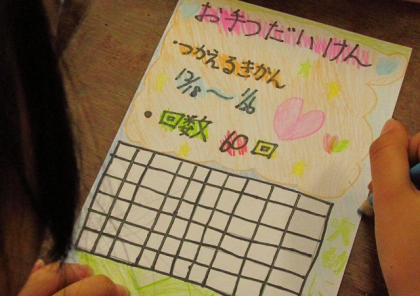 お手つだいけん
・つかえるきかん
12/18〜1/26
・回数 60回